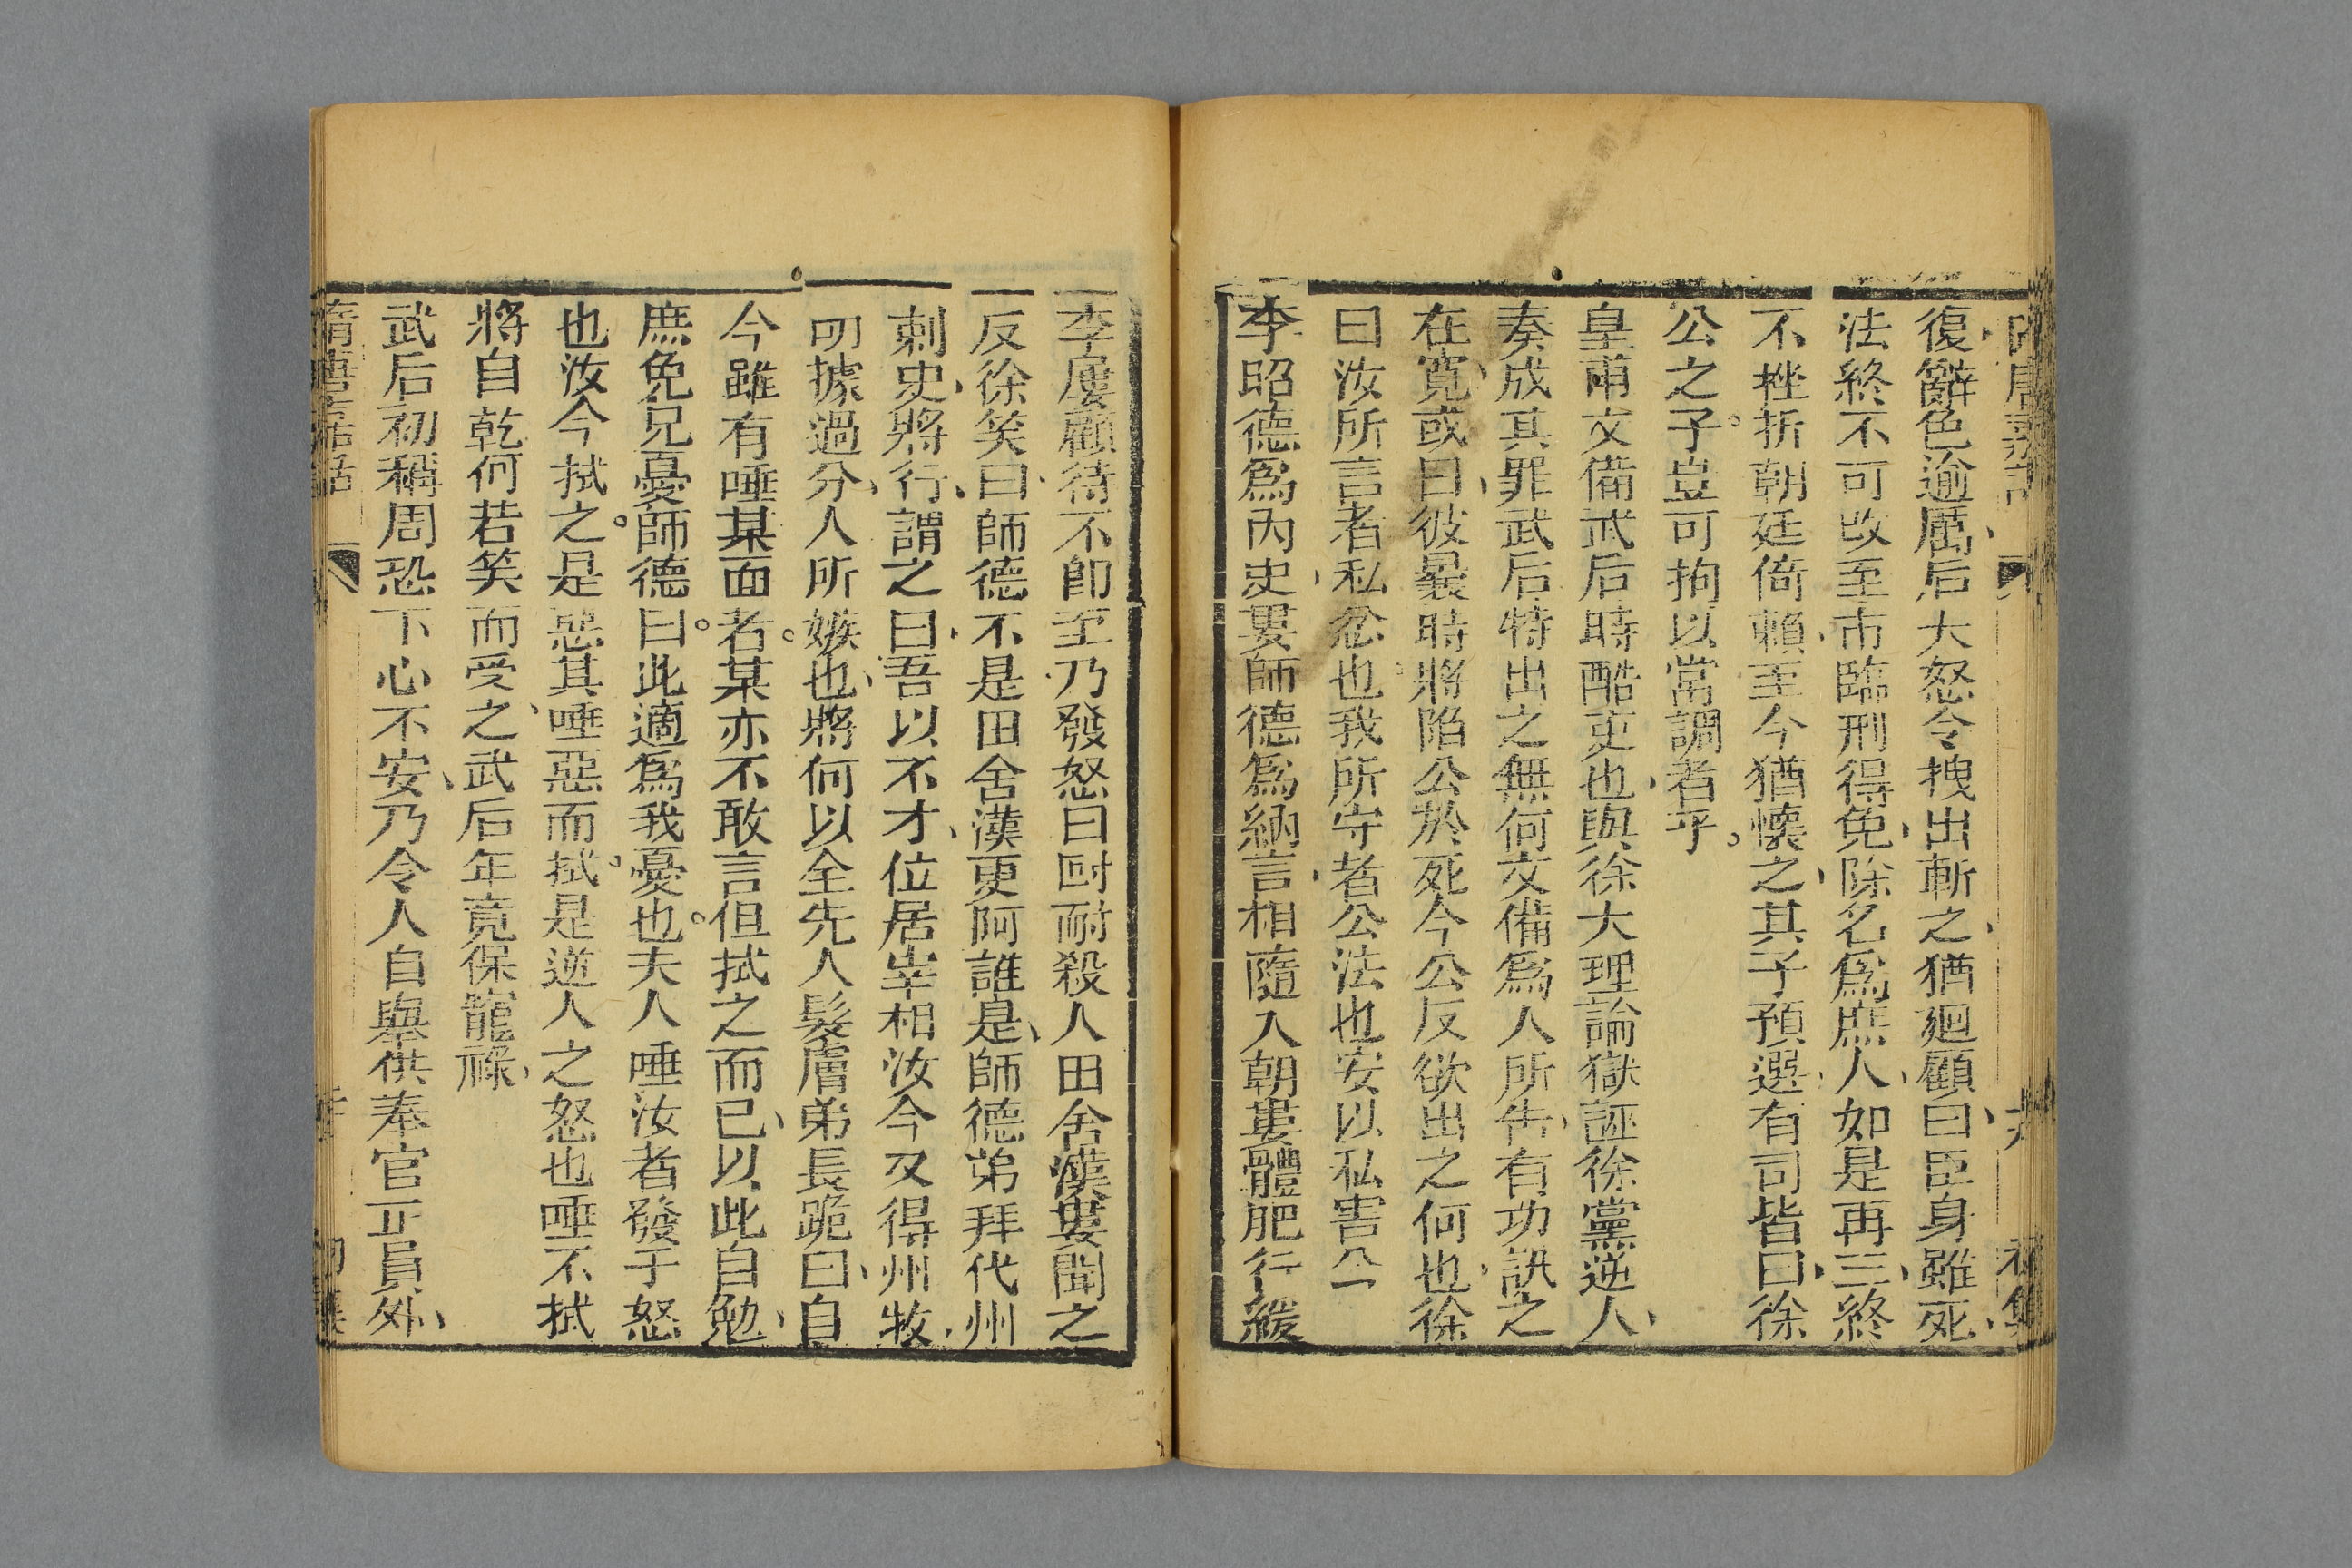 復辭色逾厲后大怒令拽出斬之猶廻顧曰臣身雖死
法終不可改至市臨刑得免除名爲庶人如是再三終
不挫折朝廷倚賴至今猶懷之其子預選有司皆曰徐
公之子豈可拘以常調者乎
皇甫文備武后時酷吏也與徐大理論獄誣徐黨逆人
奏成其罪武后特出之無何文備爲人所告有功訊之
在寬或曰彼曩時將陷公於死今公反欲出之何也徐
曰汝所言者私忿也我所守者公法也安以私害公
李昭德爲內史婁師德爲納言相隨入朝婁體肥行緩
李屢顧待不卽至乃發怒曰叵耐殺人田舍漢婁聞之
反徐笑曰師德不是田舍漢更阿誰是師德弟拜代州
刺史將行謂之曰吾以不才位居宰相汝今又得州牧
叨據過分人所嫉也將何以全先人髮膚弟長跪曰自
今雖有唾某面者某亦不敢言但拭之而已以此自勉
庶免兄憂師德曰此適爲我憂也夫人唾汝者發于怒
也汝今拭之是惡其唾惡而拭是逆人之怒也唾不拭
將自乾何若笑而受之武后年竟保寵祿
武后初稱周恐下心不安乃令人自舉供奉官正員外